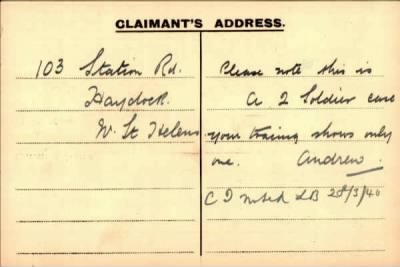 CLAIMANT'S ADDRESS.
103 Station Rd.
Haydock.
Nr. St Helens
Please note this is
a 2 Soldier case
your tracing shows only
one. Andrew.
C I noted LB 28/3/40